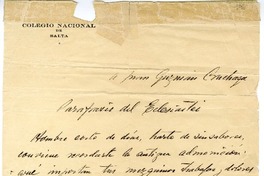 COLEGIO NACIONAL
DE
SALTA
A Juan Guzmán Cruchaga
Paráfrasis del Eclesiastés
Hombre corto de días, harto de sinsabores,
conviene recordarte la antigua admonición:
qué importan tus mezquinos trabajos y dolores